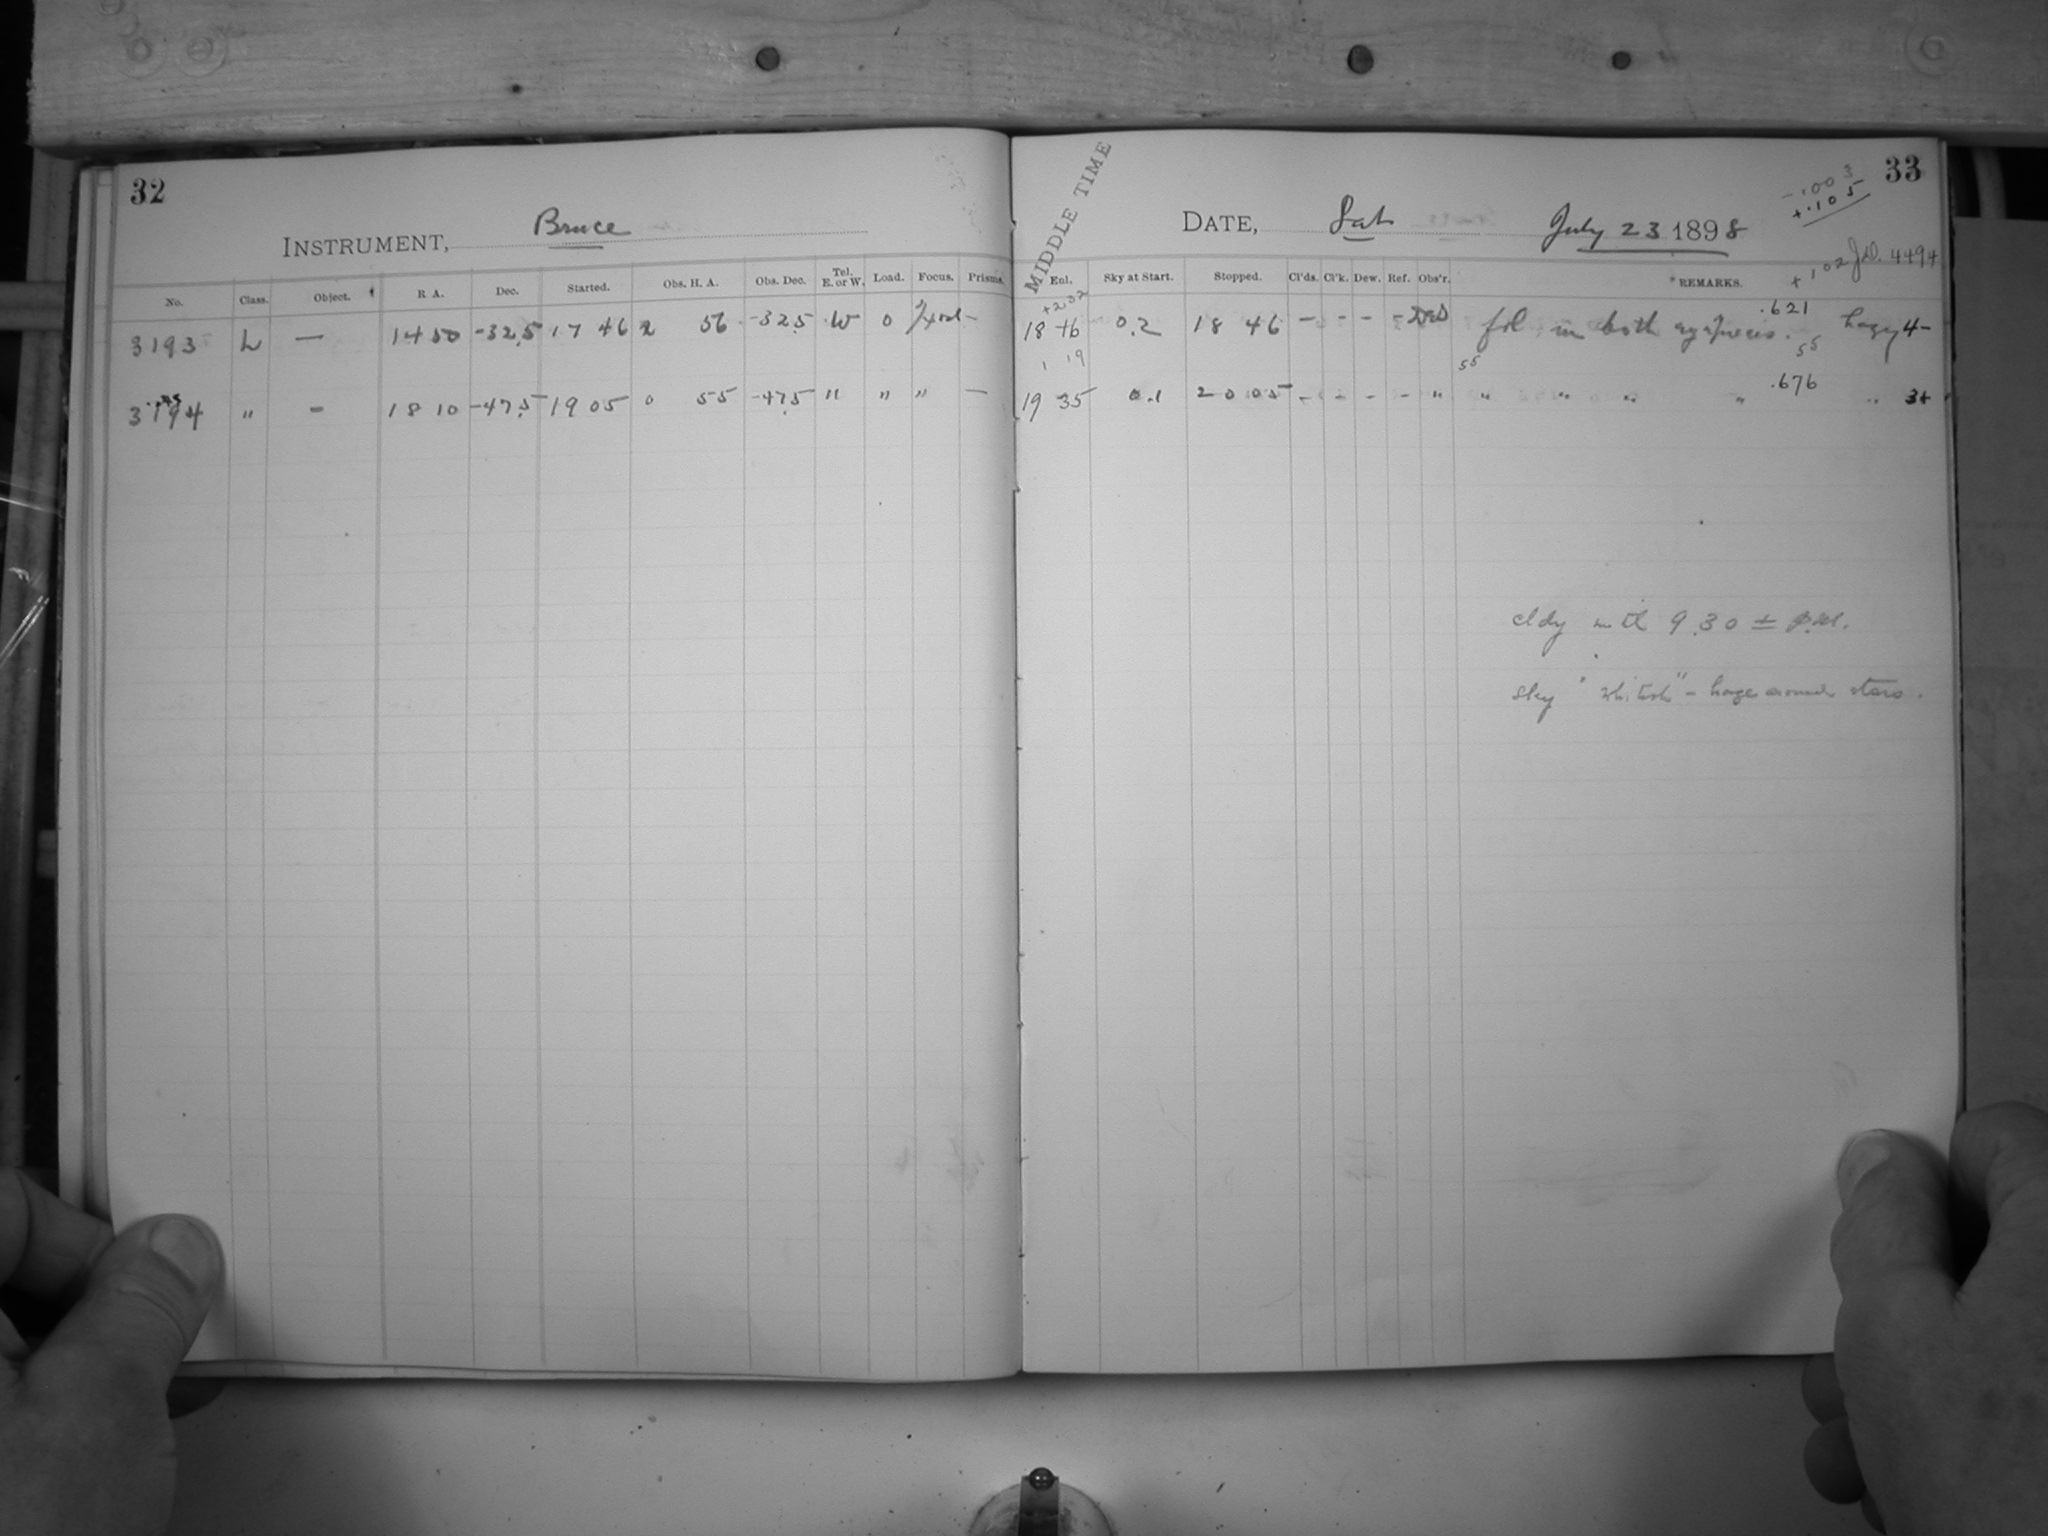 32
INSTRUMENT, Bruce
No. Class. Object. R A. Dec. Started. Obs. H. A. Obs. Dec. Tel. E. or W. Load. Focus. Prisms.
3193 L — 14 50 -32.5 17 46 2 56 -32.5 W 0 -
3194 " - 18 10 -47.5 19 05 0 55 -47.5 " " " —
33
-.1003
+.105
MIDDLE TIME
DATE, Sat July 23 1898
+.102 J.D. 4494
Enl. Sky at Start. Stopped. Cl'ds. Cl'k. Dew. Ref. Obs'r. REMARKS.
+2.32 .621
18 16 0.2 18 46 - - - - fol in both eyepieces. hazy 4-
1 19 55 55
.676
19 35 0.1 20 05 - - - - " " " " " " 3+
cldy until 9.30 ± P.M.
sky "whitish" - haze around stars.